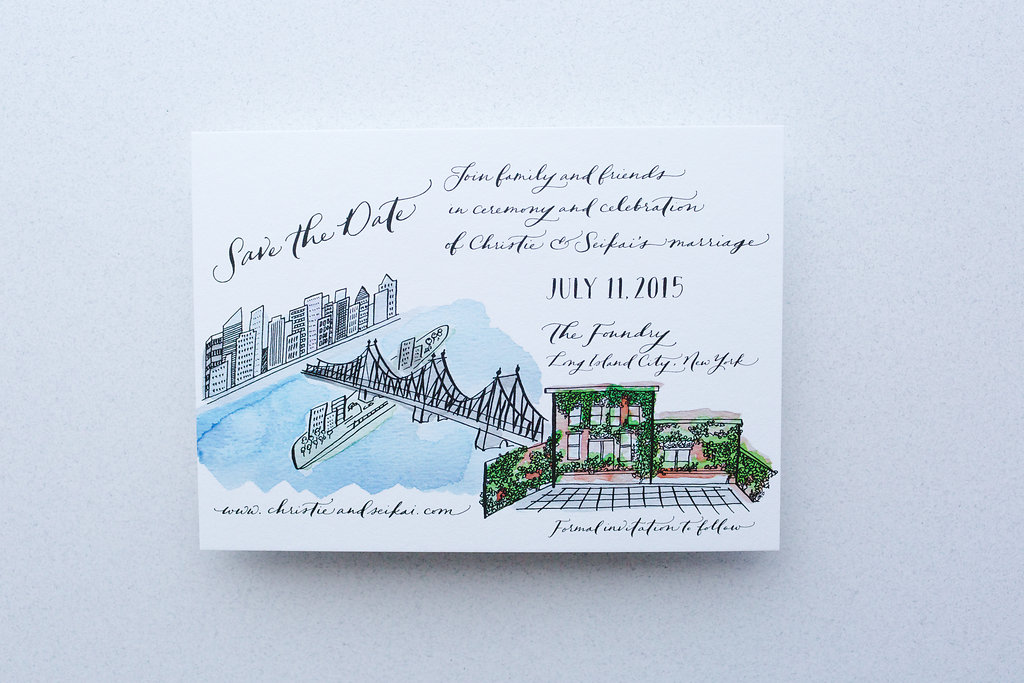 Save the Date
Join family and friends
in ceremony and celebration
of Christie & Seikai's marriage
JULY 11, 2015
The Foundry
Long Island City, New York
www.christieandseikai.com
Formal invitation to follow